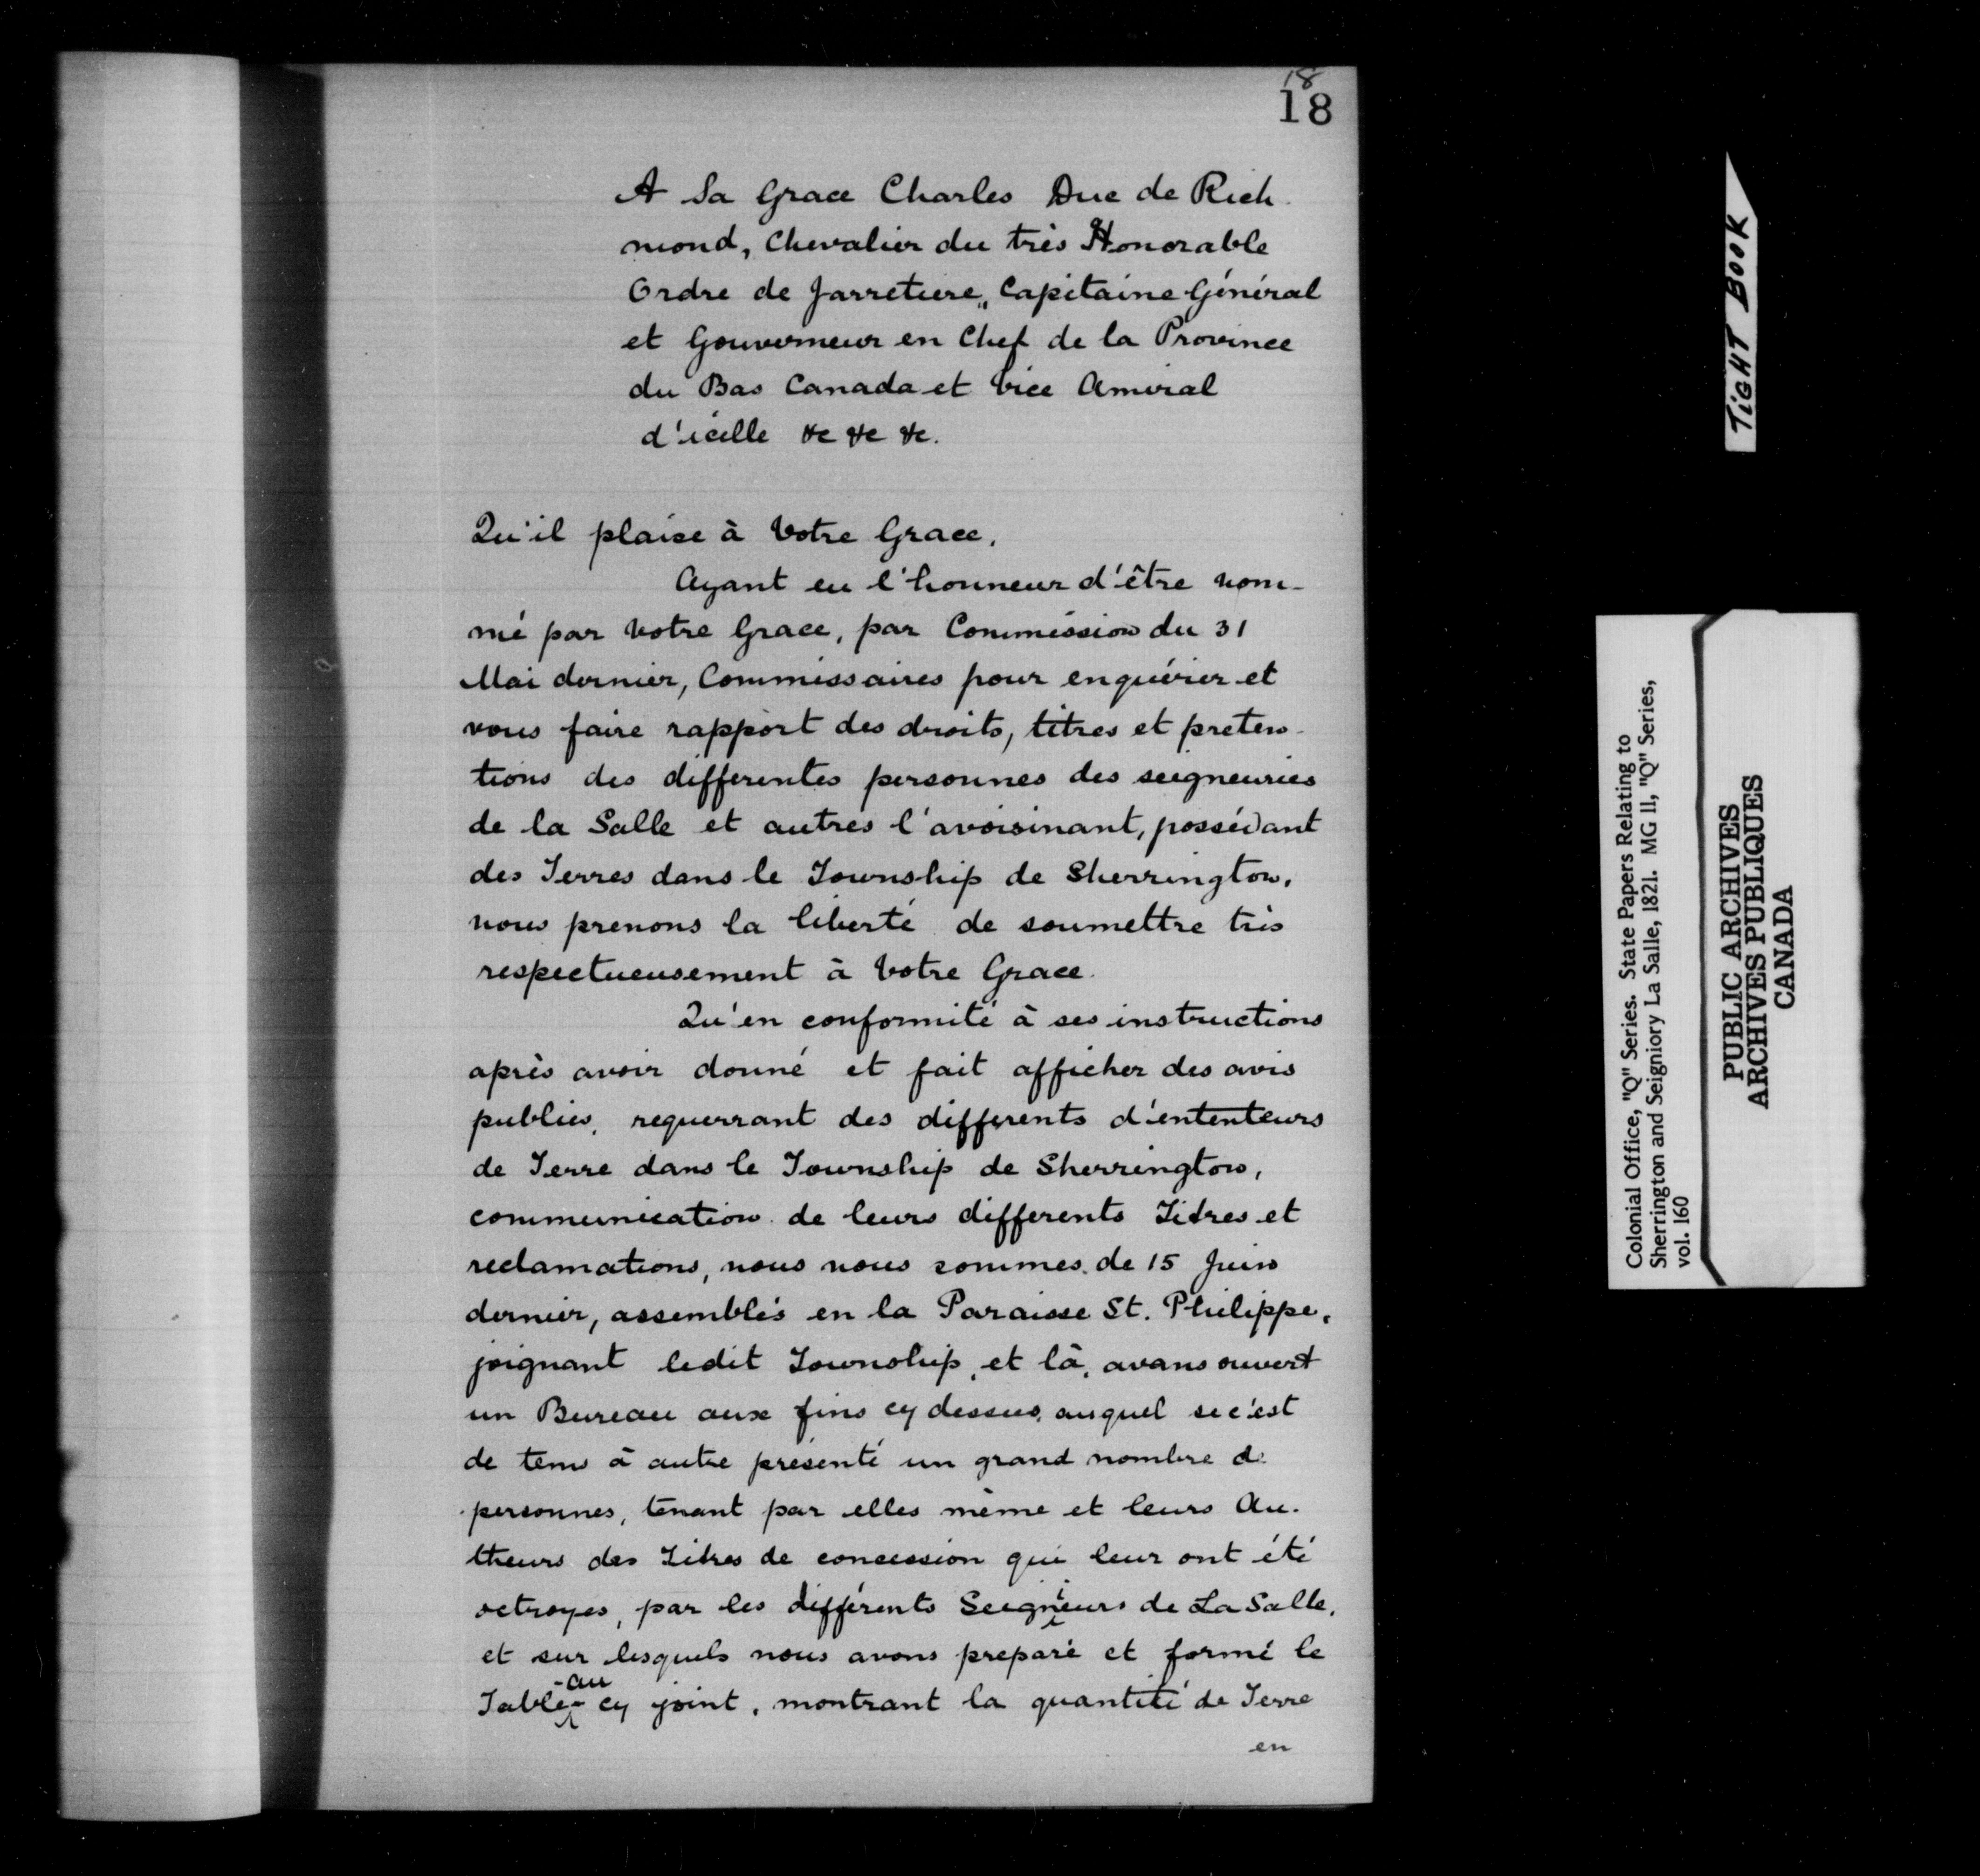 18
18
A Sa Grace Charles Duc de Rich
mond, Chevalier du très Honorable
Ordre de Jarretiere,, Capitaine Général
et Gouverneur en Chef de la Province
du Bas Canada et Vice Amiral
d'icelle &c &c &c.
Qu'il plaise à Votre Grace,
Ayant eu l'honneur d'être nom-
mé par Votre Grace, par Commission du 31
Mai dernier, Commissaires pour enquérier et
vous faire rapport des droits, titres et preten-
tions des differentes personnes des seigneuries
de la Salle et autres l'avoisinant, possédant
des Terres dans le Township de Sherrington,
nous prenons la liberté de soumettre très
respectueusement à Votre Grace.
Qu'en conformité à ses instructions
après avoir donné et fait afficher des avis
publics, requerrant des differents d'ententeurs
de Terre dans le Township de Sherrington,
communication de leurs differents Titres et
reclamations, nous nous sommes de 15 Juin
dernier, assemblés en la Paraisse St. Philippe,
joignant ledit Township, et là, avans ouvert
un Bureau aux fins cy dessus, auquel se c'est
de tems à autre présenté un grand nombre de
personnes, tenant par elles même et leurs Au-
theurs des Titres de concession qui leur ont été
octroyes, par les différents Seigneurs de La Salle,
et sur lesquels nous avons preparé et formé le
Table-au cy joint, montrant la quantité de Terre
en
TIGHT BOOK
Colonial Office, "Q" Series. State Papers Relating to
Sherrington and Seigniory La Salle, 1821. MG 11, "Q" Series,
vol. 160
PUBLIC ARCHIVES
ARCHIVES PUBLIQUES
CANADA